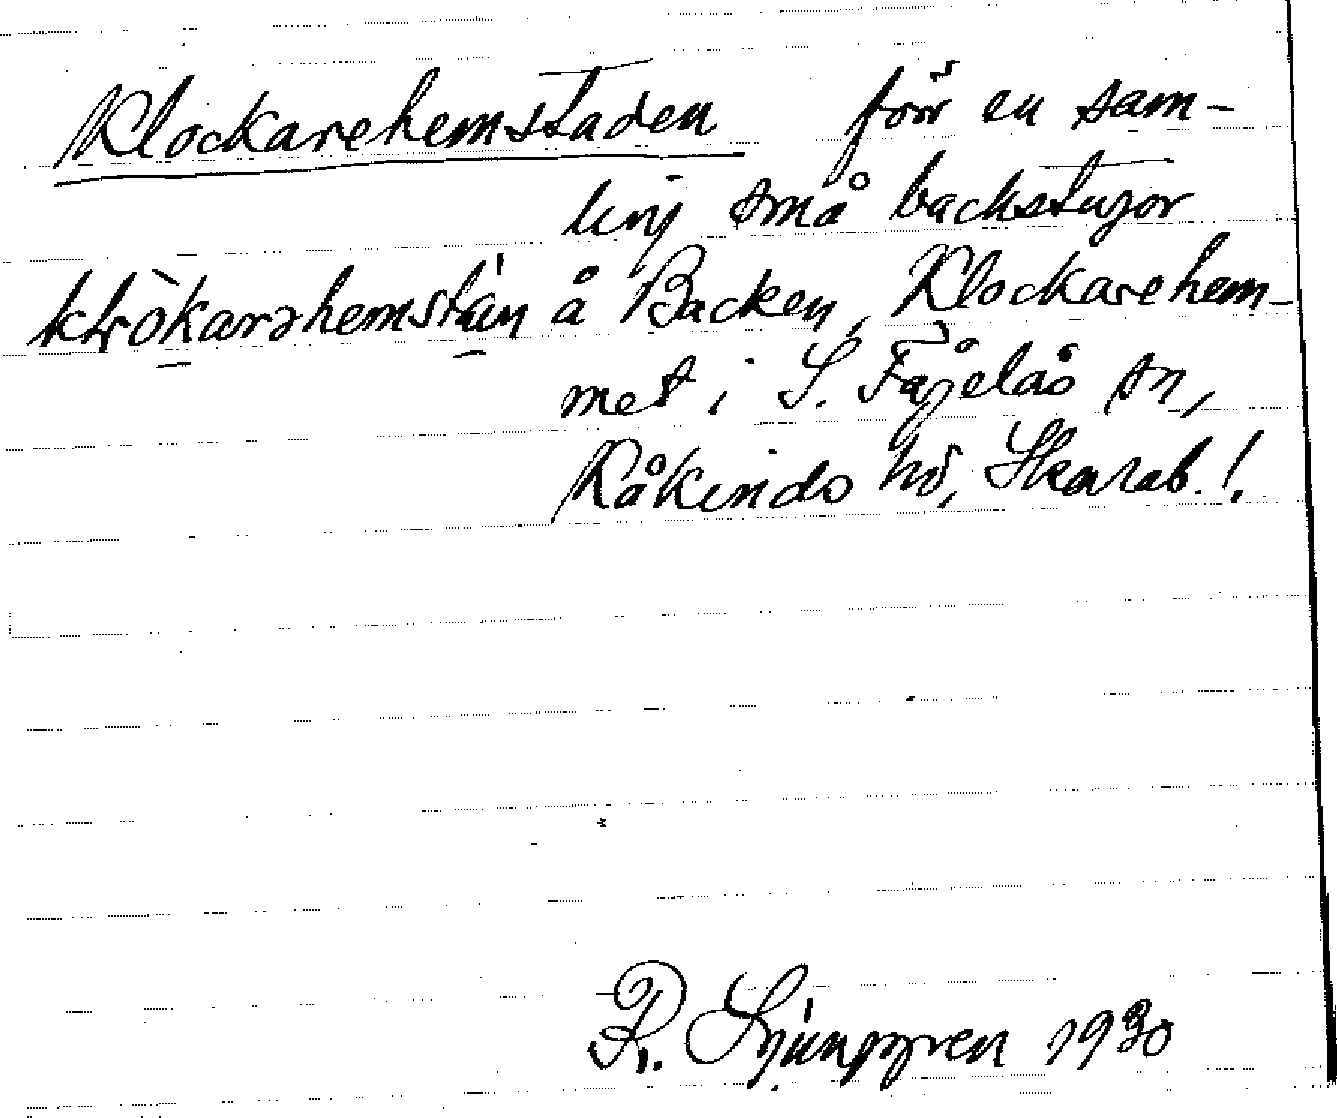 Klockarehemstaden förr en sam-
ling små backstugor
å Backen, Klockarehem-
met i S. Fågelås sn,
Kåkinds hd, Skarab. l.
R. Ljunggren 1930